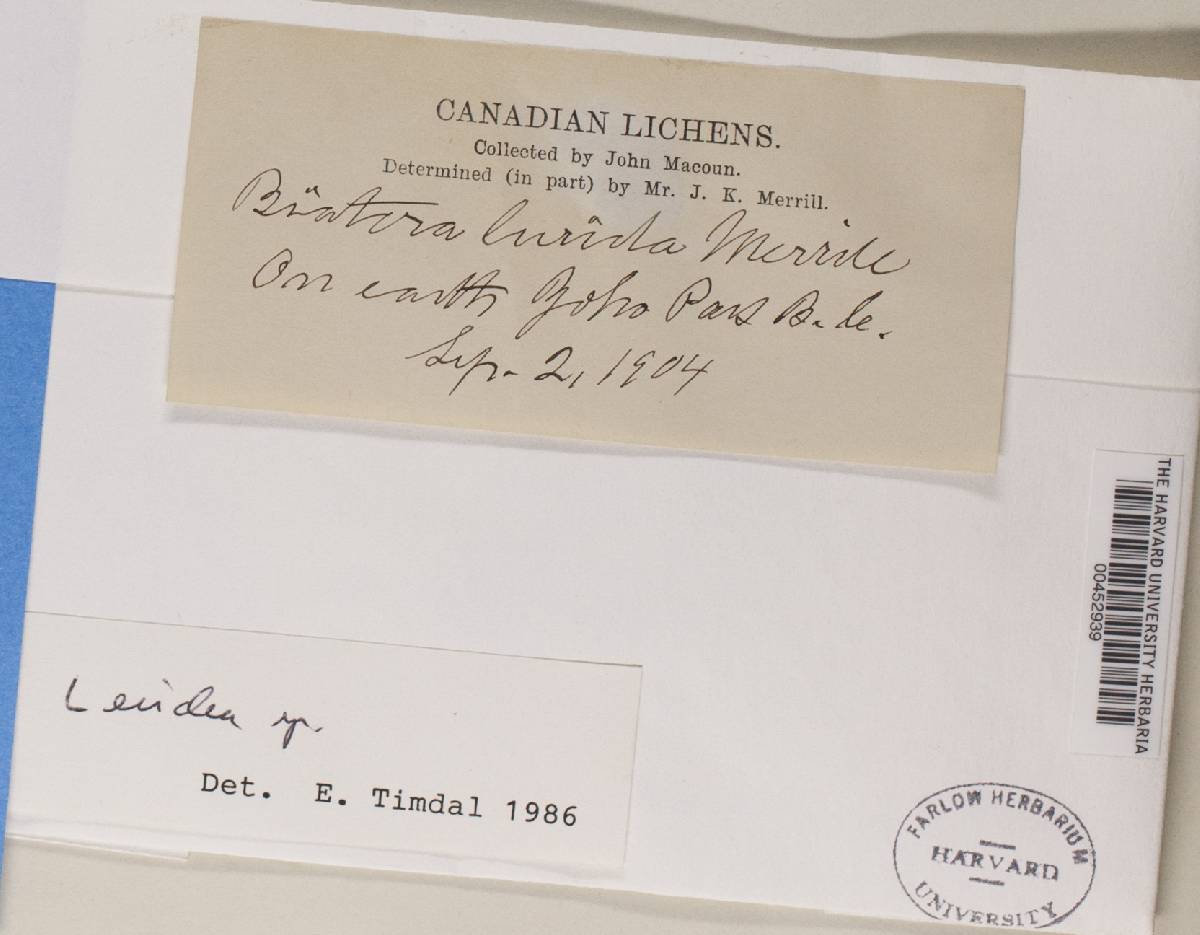 CANADIAN LICHENS.
Collected by John Macoun.
Determined (in part) by Mr. J. K. Merrill.
Biatora lurida Merrill
On earth Yoho Park B.C.
Sep. 2, 1904
THE HARVARD UNIVERSITY HERBARIA
00452939
Lecidea sp.
Det. E. Timdal 1986
FARLOW HERBARIUM
HARVARD
UNIVERSITY